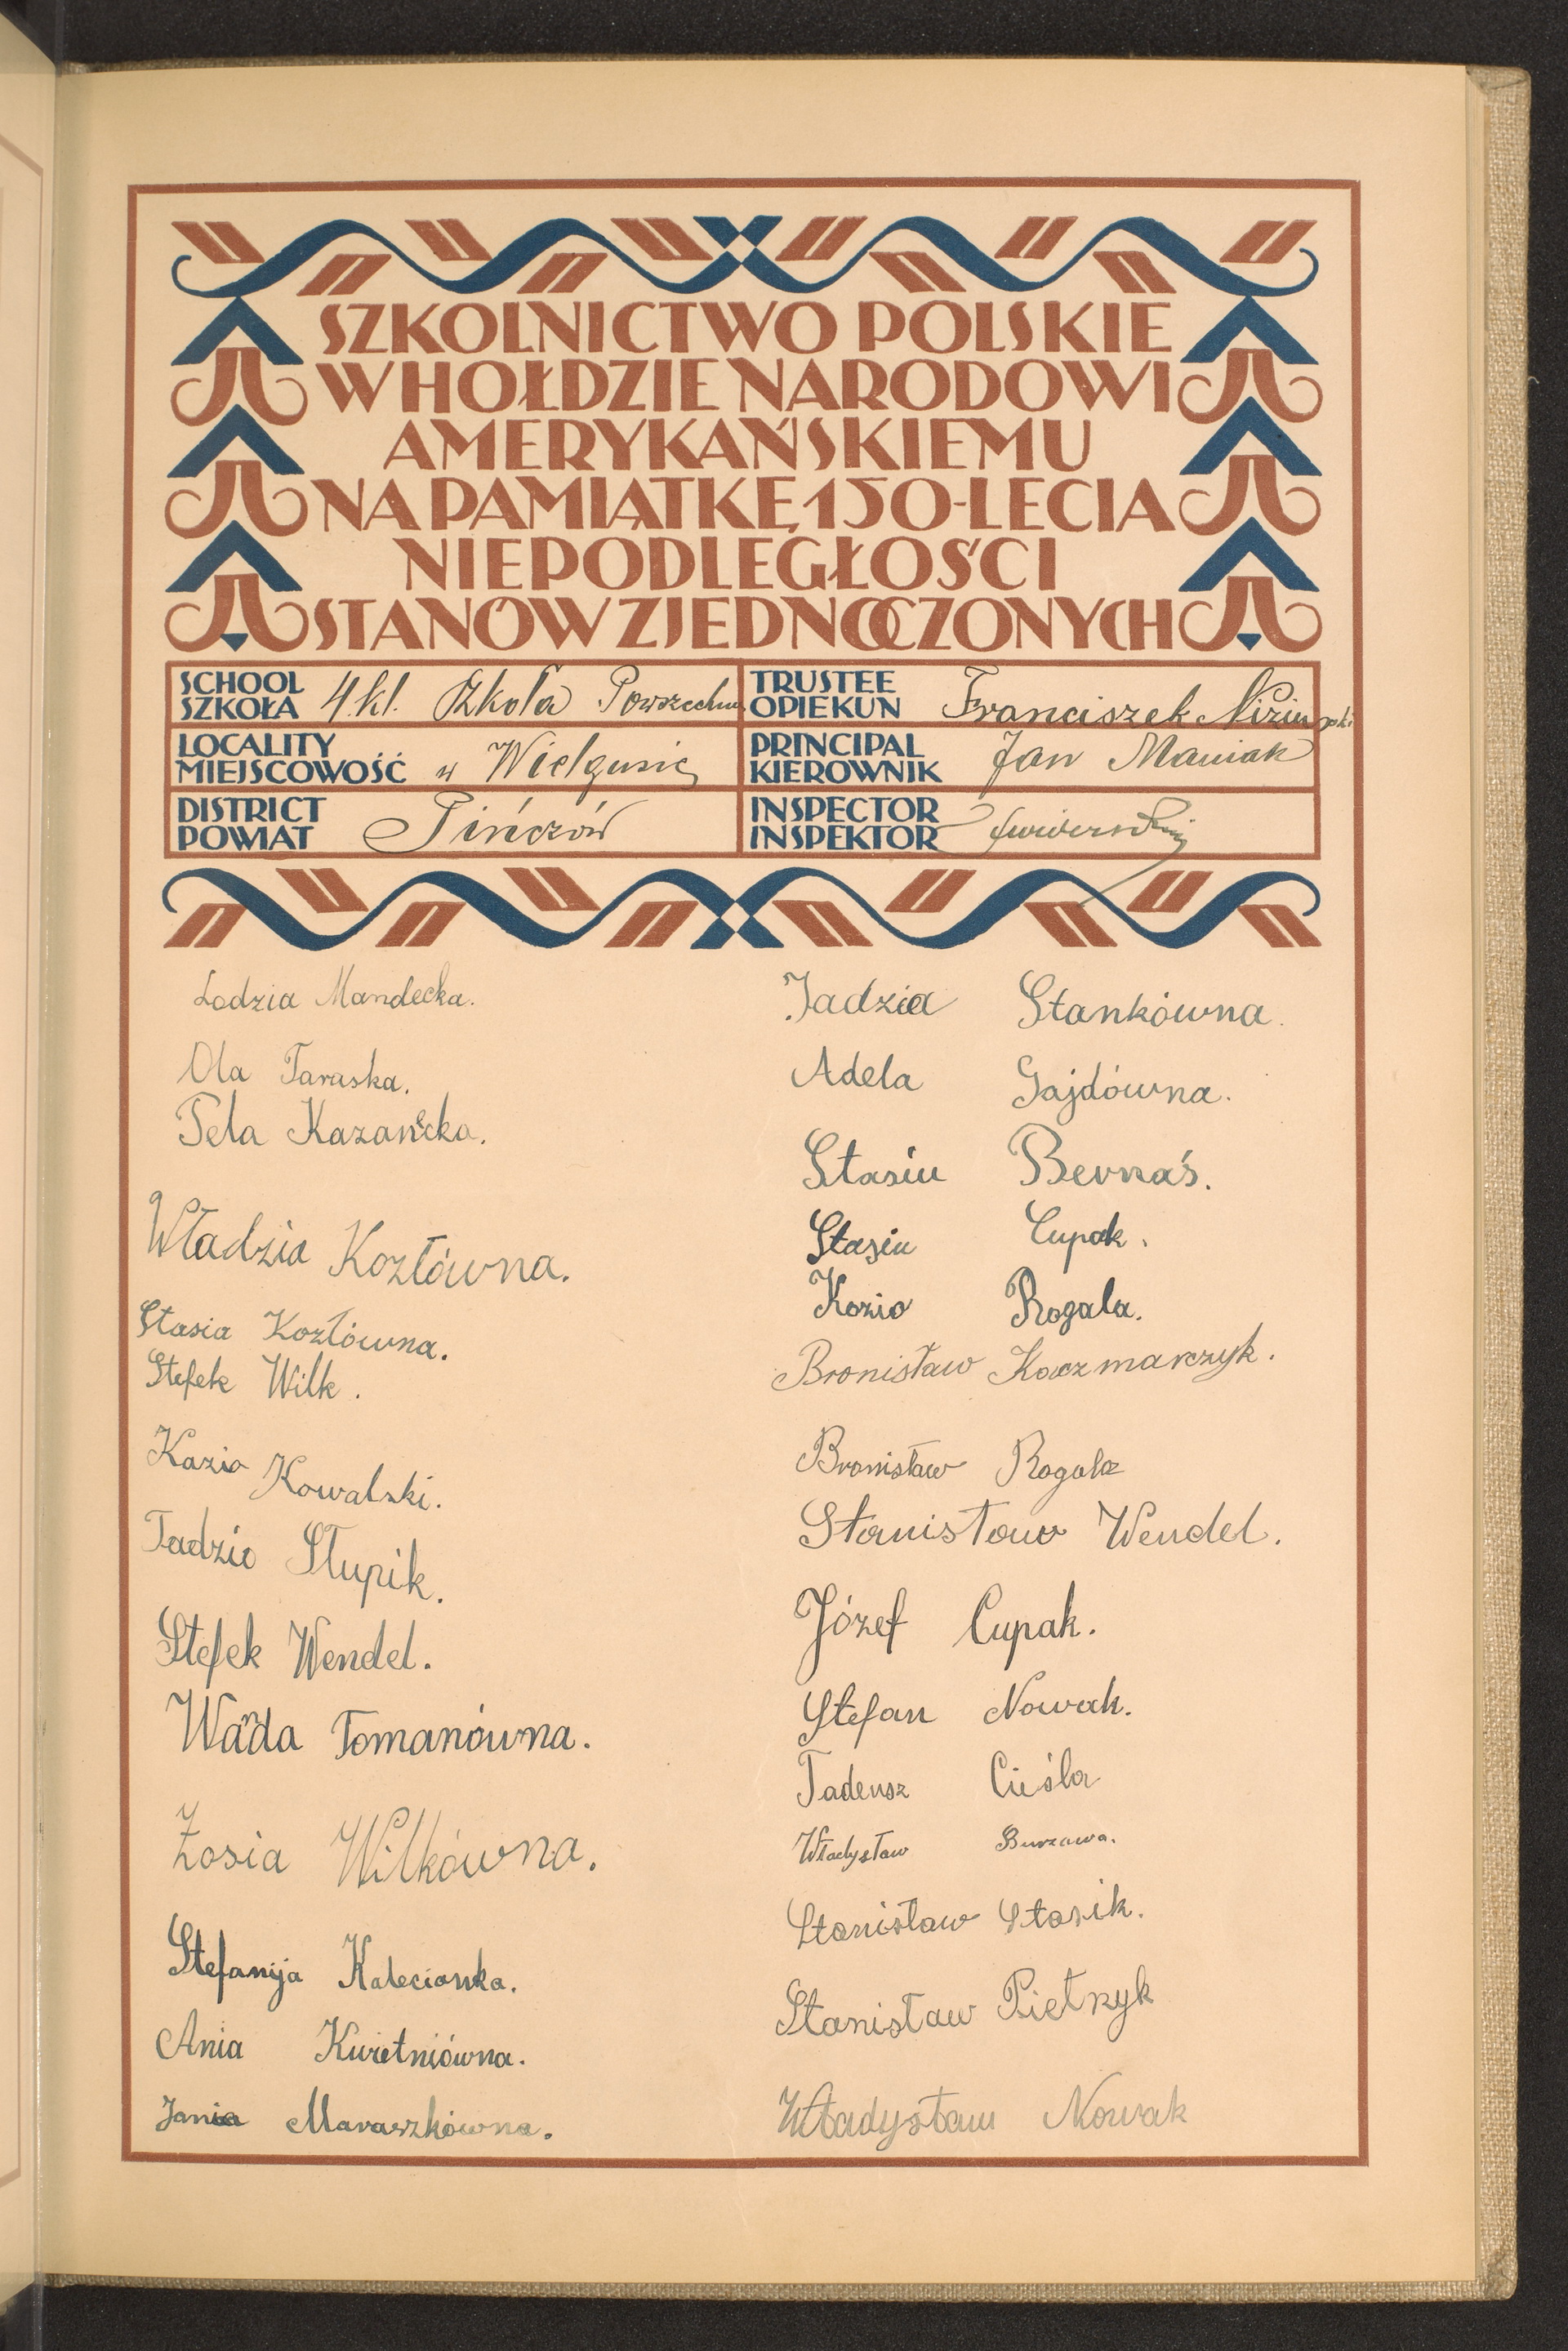 SZKOLNICTWO POLSKIE
W HOŁDZIE NARODOWI
AMERYKAŃSKIEMU
NA PAMIĄTKĘ 150-LECIA
NIEPODLEGŁOŚCI
STANÓW ZJEDNOCZONYCH
SCHOOL
SZKOŁA 4 kl. Szkoła Powszechna
TRUSTEE
OPIEKUN Franciszek Niziurski
LOCALITY
MIEJSCOWOŚĆ w Wielgusie
PRINCIPAL
KIEROWNIK Jan Maniak
DISTRICT
POWIAT Pińczów
INSPECTOR
INSPEKTOR
Lodzia Mandecka.
Ola Taraska.
Fela Kazanecka.
Władzia Kozłówna.
Stasia Kozłówna.
Stefek Wilk.
Kazio Kowalski.
Tadzio Słupik.
Stefek Wendel.
Wanda Tomanówna.
Zosia Wilkówna.
Stefanija Kalecianka.
Ania Kwietniówna.
Jania Maraszkówna.
Jadzia Stankówna.
Adela Gajdówna.
Stasiu Bernaś.
Stasiu Cupak.
Kazio Rogala.
Bronisław Kaczmarczyk.
Bronisław Rogala
Stanisław Wendel.
Józef Cupak.
Stefan Nowak.
Tadeusz Cieśla
Władysław Burzawa.
Stanisław Stasik.
Stanisław Pietrzyk
Władysław Nowak